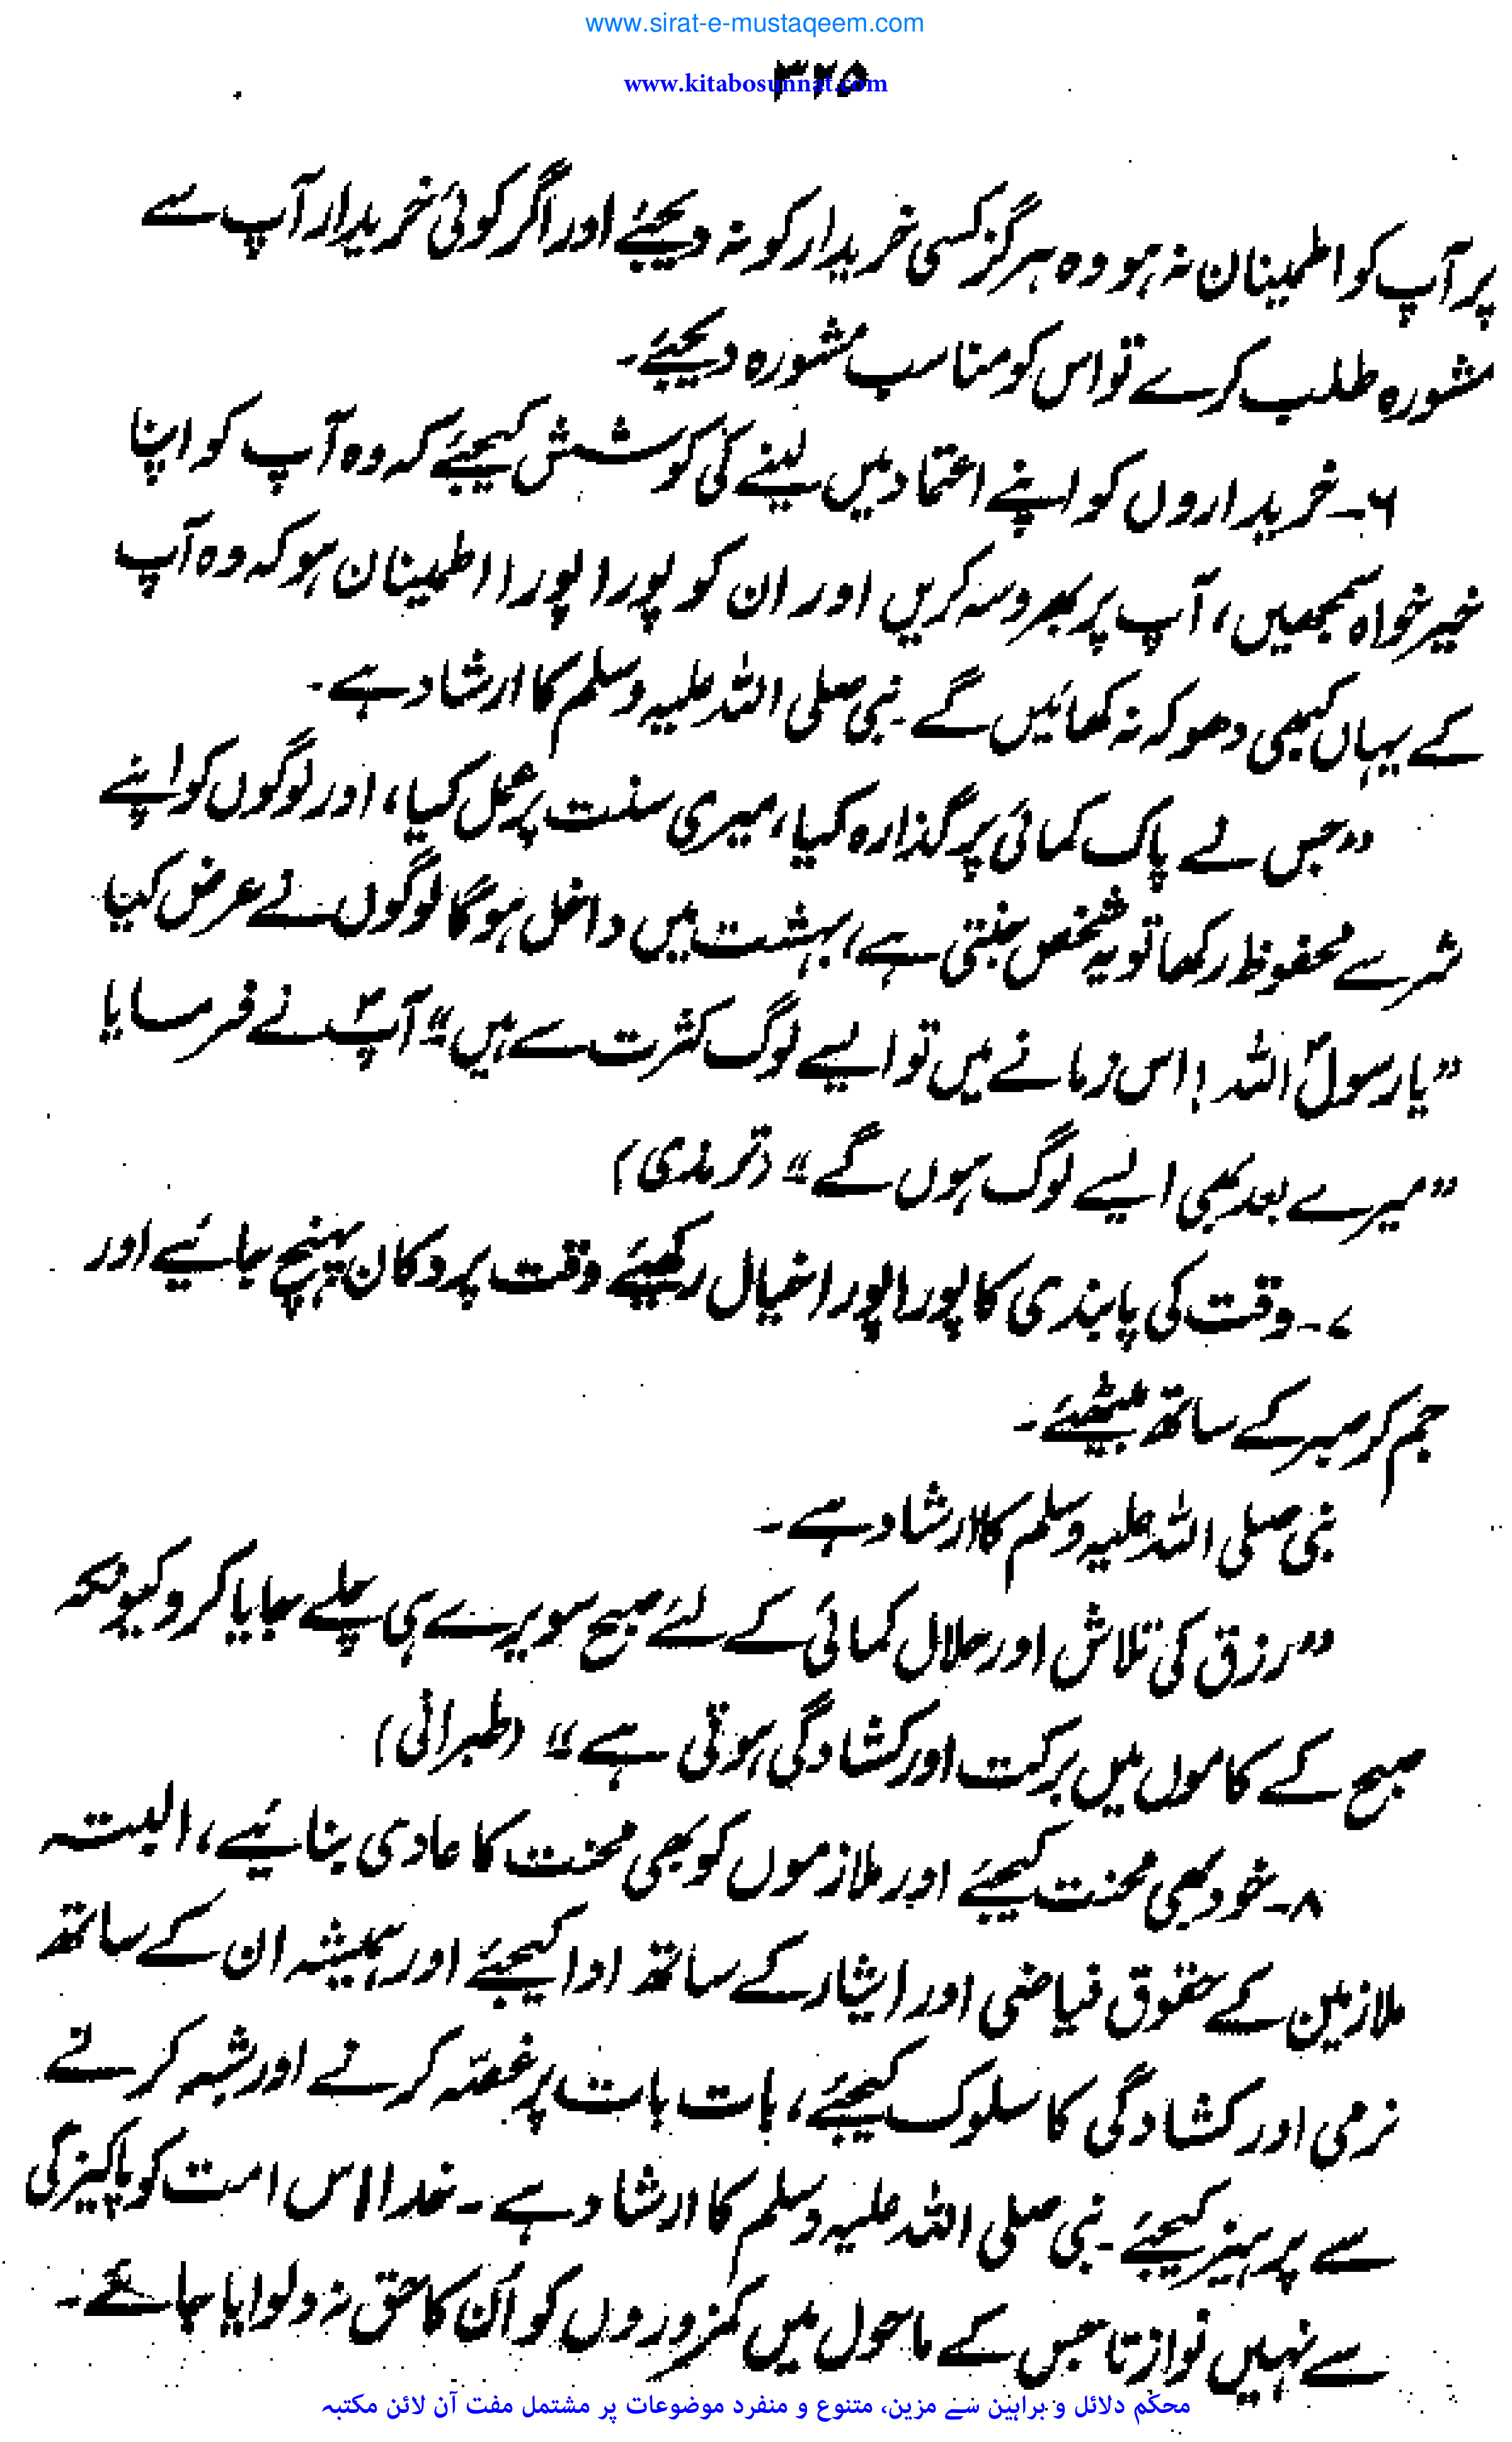 www.sirat-e-mustaqeem.com
۳۲۵
www.kitabosunnat.com
پر آپ کو اطمینان نہ ہو وہ ہرگز کسی خریدار کو نہ دیجئے اور اگر کوئی خریدار آپ سے
مشورہ طلب کرے تو اس کو مناسب مشورہ دیجئے۔
۶۔ خریداروں کو اپنے اعتماد میں لینے کی کوشش کیجئے کہ وہ آپ کو اپنا
خیر خواہ سمجھیں، آپ پر بھروسہ کریں اور ان کو پورا پورا اطمینان ہو کہ وہ آپ
کے یہاں کبھی دھوکہ نہ کھائیں گے۔ نبی صلی اللہ علیہ وسلم کا ارشاد ہے۔
”جس نے پاک کمائی پر گذارہ کیا، میری سنت پر عمل کیا، اور لوگوں کو اپنے
شر سے محفوظ رکھا تو یہ شخص جنتی ہے، بہشت میں داخل ہوگا لوگوں نے عرض کیا
”یا رسولؐ اللہ! اس زمانے میں تو ایسے لوگ کثرت سے ہیں“ آپؐ نے فرمایا
”میرے بعد بھی ایسے لوگ ہوں گے“ (ترمذی)
۷۔ وقت کی پابندی کا پورا پورا خیال رکھیئے وقت پر دکان پہنچ جائیے اور
جم کر صبر کے ساتھ بیٹھئے۔
نبی صلی اللہ علیہ وسلم کا ارشاد ہے۔
”رزق کی تلاش اور حلال کمائی کے لئے صبح سویرے ہی چلے جایا کرو کیونکہ
صبح کے کاموں میں برکت اور کشادگی ہوتی ہے“ (طبرانی)
۸۔ خود بھی محنت کیجئے اور ملازموں کو بھی محنت کا عادی بنائیے، البتہ
ملازمین کے حقوق فیاضی اور ایثار کے ساتھ ادا کیجئے اور ہمیشہ ان کے ساتھ
نرمی اور کشادگی کا سلوک کیجئے، بات بات پر غصّہ کرنے اور شبہ کرنے
سے پرہیز کیجئے۔ نبی صلی اللہ علیہ وسلم کا ارشاد ہے۔ خدا اس امت کو پاکیزگی
سے نہیں نوازتا جس کے ماحول میں کمزوروں کو اُن کا حق نہ دلوایا جائے۔
محکم دلائل و براہین سے مزین، متنوع و منفرد موضوعات پر مشتمل مفت آن لائن مکتبہ